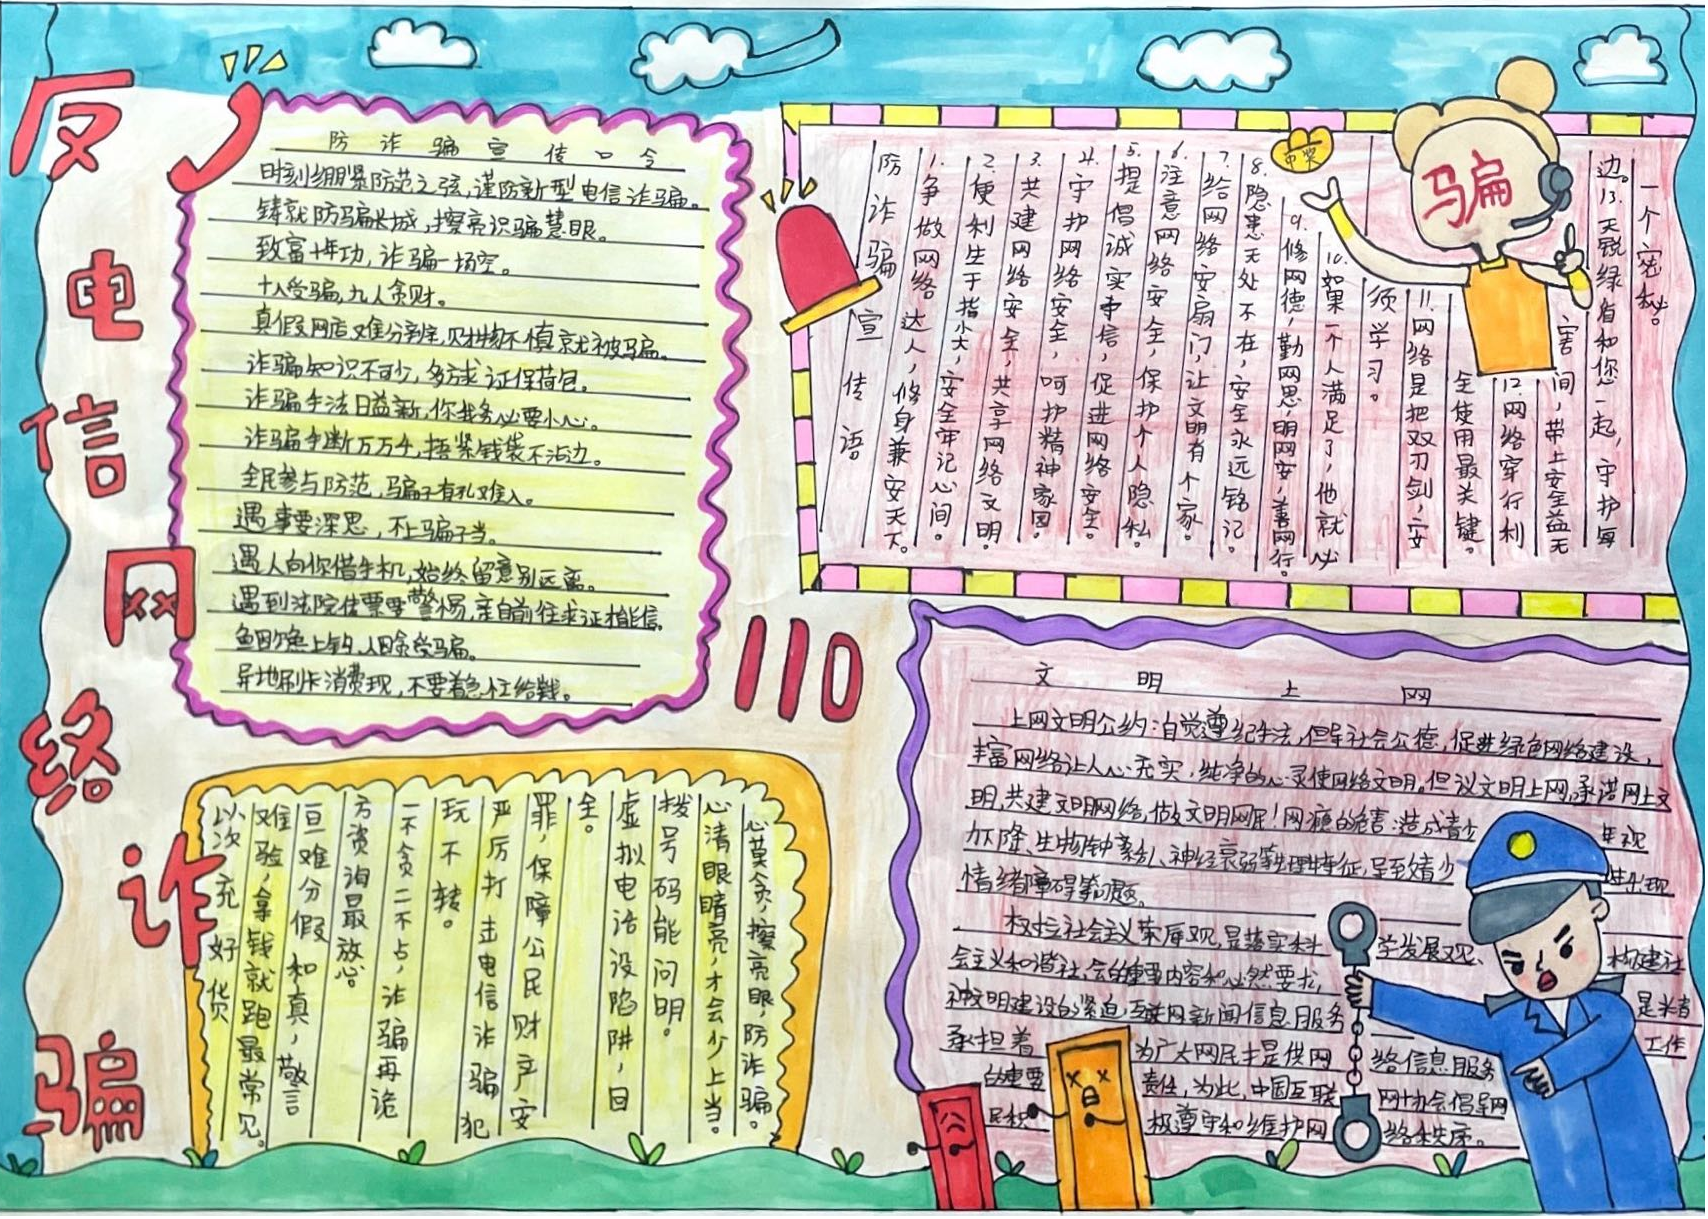 反电信网络诈骗
防诈骗宣传口令
时刻绷紧防范之弦,谨防新型电信诈骗。
铸就防骗长城,擦亮识骗慧眼。
致富十年功,诈骗一场空。
十人受骗,九人贪财。
真假网店难分辨,财物不慎就被骗。
诈骗知识不可少,多方求证保荷包。
诈骗手法日益新,你我务必要小心。
诈骗手断万万千,捂紧钱袋不沾边。
全民参与防范,骗子有孔难入。
遇事要深思,不上骗子当。
遇人向你借手机,始终留意别远离。
遇到法院传票要警惕,亲自前往求证才能信。
鱼因贪上钩,人因贪受骗。
异地刷卡消费现,不要着急忙给钱。
防诈骗宣传语
1.争做网络达人,修身兼安天下。
2.便利生于指尖,安全牢记心间。
3.共建网络安全,共享网络文明。
4.守护网络安全,呵护精神家园。
5.提倡诚实守信,促进网络安全。
6.注意网络安全,保护个人隐私。
7.给网络安扇门,让文明有个家。
8.隐患无处不在,安全永远铭记。
9.修网德,勤网思,明网安,善网行。
10.如果一个人满足了,他就必
须学习。
11.网络是把双刃剑,安
全使用最关键。
12.网络穿行利
害间,带上安全益无
边。13.天锐绿盾和您一起,守护每
一个密秘。
中奖
骗
110
心莫贪,擦亮眼,防诈骗。
心清眼睛亮,才会少上当。
拨号码能问明。
虚拟电话设陷阱,回
全。
罪,保障公民财产安
严厉打击电信诈骗犯
玩不转。
一不贪二不占,诈骗再诡
方资询最放心
亘难分假和真,警言
难验,拿钱就跑最常见。
以次充好货
文明上网
上网文明公约:自觉遵纪守法,倡导社会公德,促进绿色网络建设,
丰富网络让人心充实,纯净的心灵使网络文明。倡议文明上网,承诺网上文
明,共建文明网络,做文明网民!网瘾的危害:造成青少年视
力下降、生物钟紊乱、神经衰弱等生理特征,甚至使青少年出现
情绪障碍等问题。
树立社会主义荣辱观,是落实科学发展观、构建社
会主义和谐社会的重要内容和必然要求,是米青
神文明建设的紧迫,互联网新闻信息服务工作
承担着为广大网民提供网络信息服务
的重要责任,为此,中国互联网协会倡导网
民积极遵守和维护网络秩序。